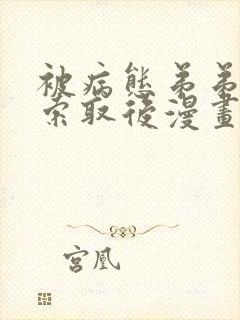 被病態弟弟
索取後漫畫
宮凰